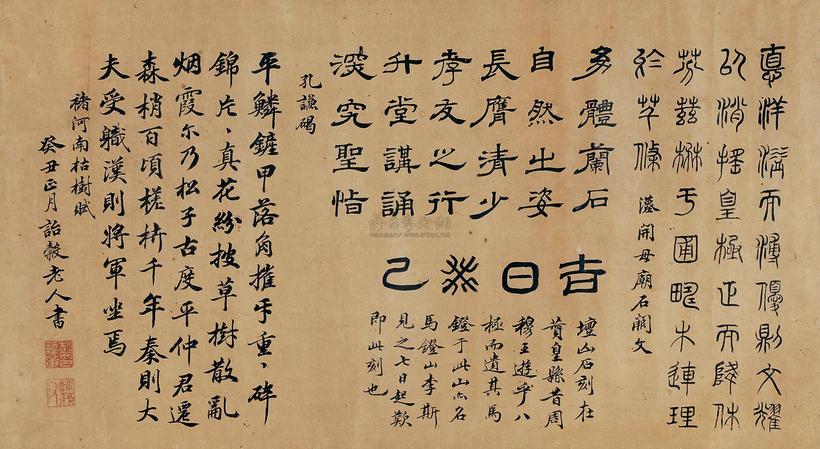 惪洋溢而溥優則文燿
以消搖皇極正而降休
芬茲楙于圃疇木連理
於芊條
漢開母廟石闕文
幼體蘭石
自然之姿
長膺清少
孝友之行
升堂講誦
深究聖恉
孔謙碣
吉日癸巳
壇山石刻在
贊皇縣昔周
穆王遊乎八
極而遺其馬
鐙于此山亦名
馬鐙山李斯
見之七日起歎
即此刻也
平鱗鏟甲落角摧牙重〻碎
錦片〻真花紛披草樹散亂
烟霞尒乃松子古度平仲君遷
森梢百頃槎枿千年秦則大
夫受職漢則將軍坐焉
褚河南枯樹賦
癸丑正月詒穀老人書